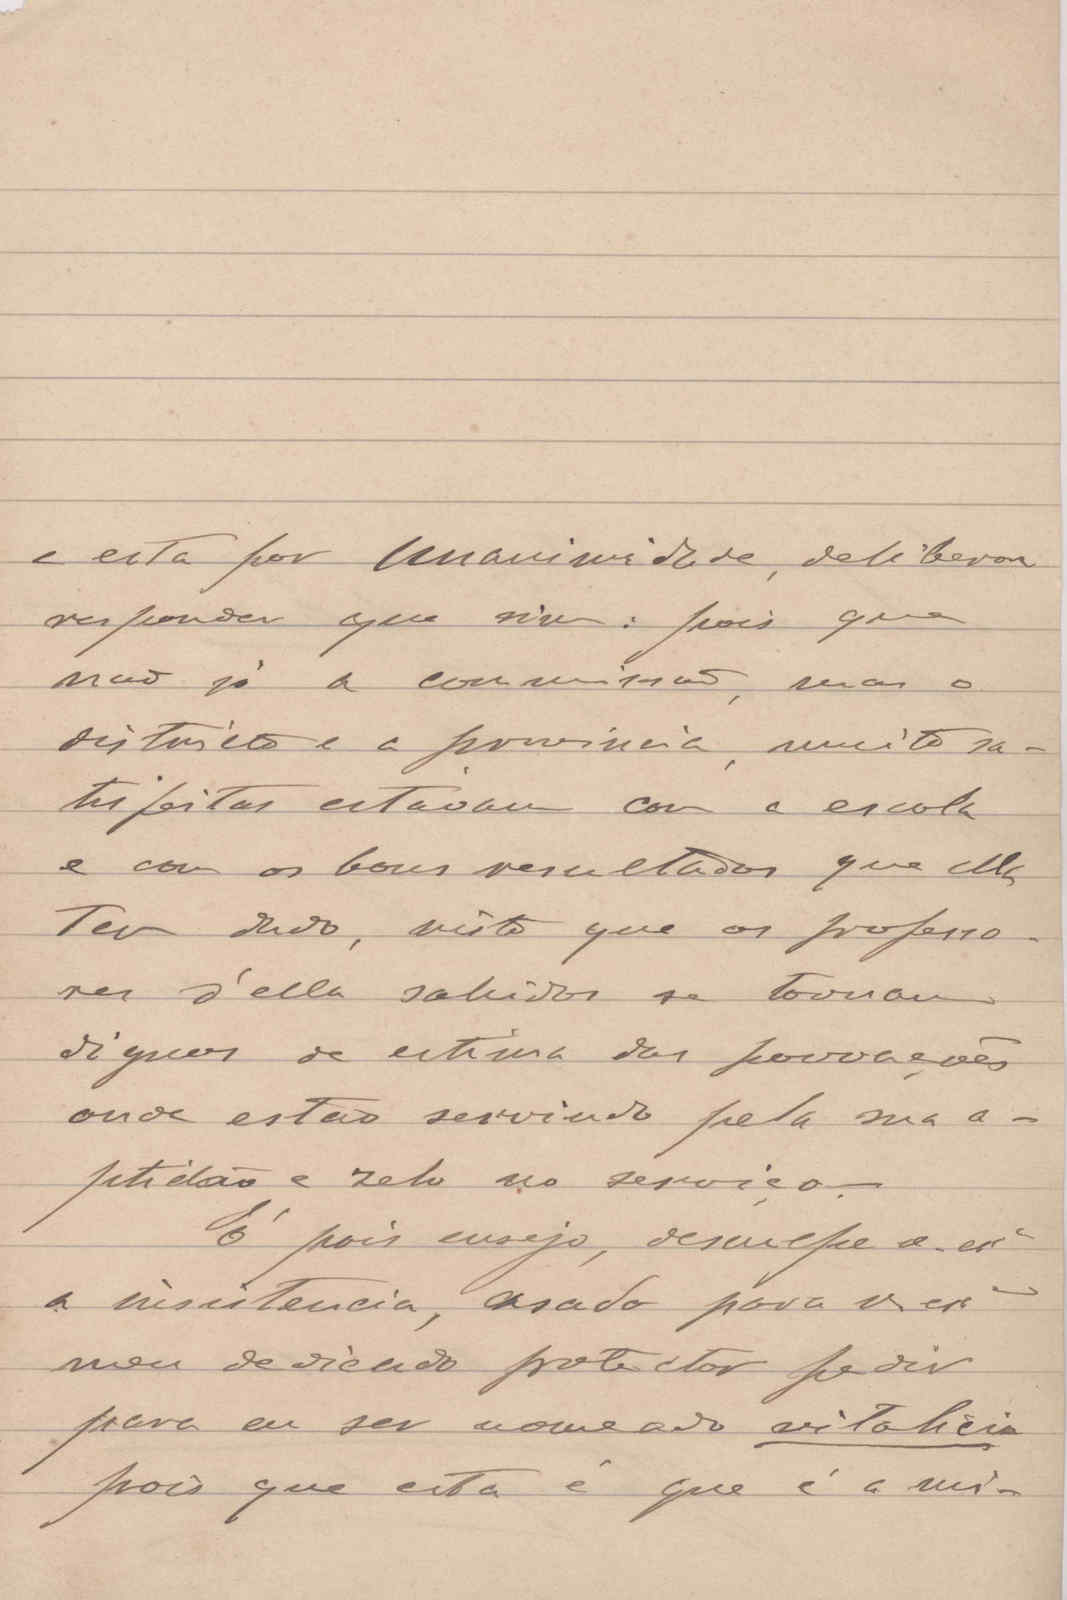 e esta por unanimidade, deliberou
responder que sim: pois que
não só a commissão, mas o
districto e a provincia, muito sa-
tisfeitas estavam com a escola
e com os bons resultados que ella
tem dado, visto que os professo-
res d'ella sahidos se tornam
dignos de estima das povoações
onde estão servindo pela sua a-
ptidão e zelo no serviço.
É pois ensejo, desculpe v. exª
a insistencia, asado para v. exª
meu dedicado protector pedir
para eu ser nomeado vitalicio
pois que esta é que é a mi-